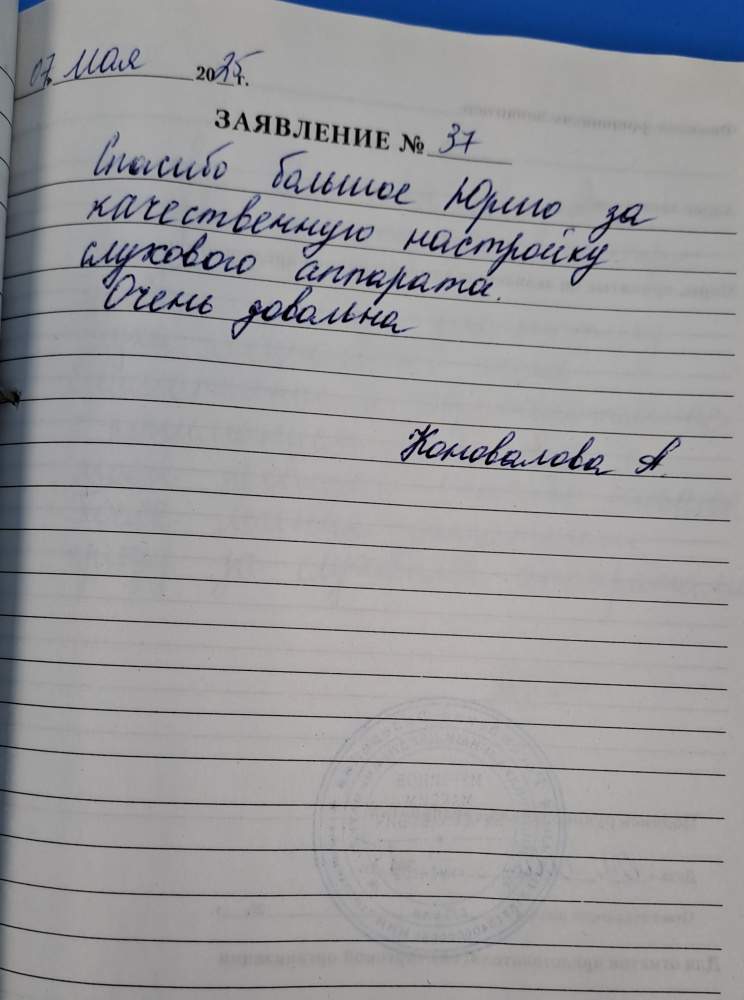 07 Мая 2025 г.
ЗАЯВЛЕНИЕ № 37
Спасибо большое Юрию за
качественную настройку
слухового аппарата.
Очень довольна
Коновалова А.